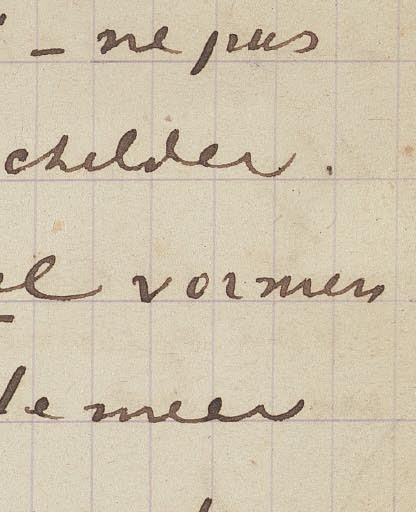 – ne pas
childer.
el vormen
de meer